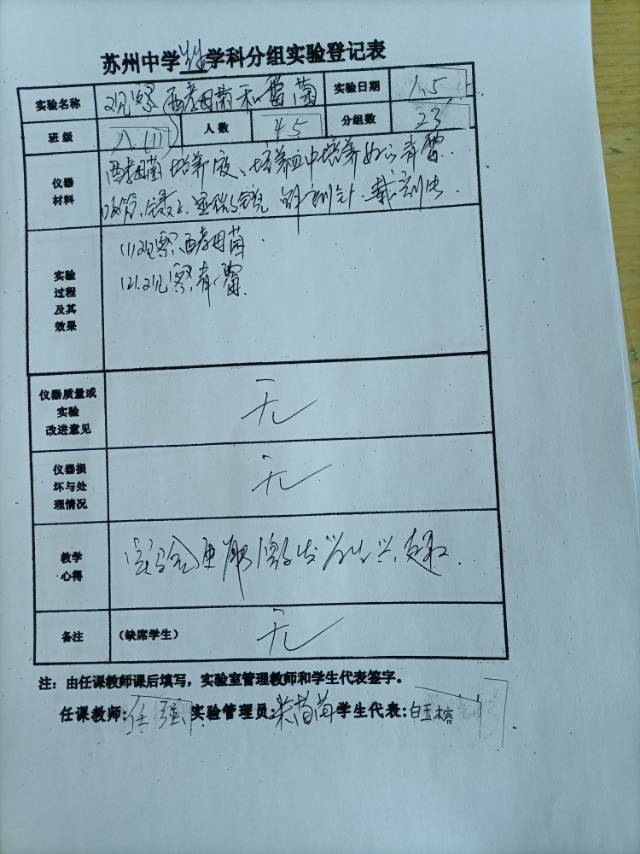 苏州中学生物学科分组实验登记表
实验名称 观察酵母菌和霉菌 实验日期 1.5
班级 八(11) 人数 45 分组数 23
仪器材料 酵母菌培养液、培养皿中培养的青霉.
吸管、显微镜 解剖针 载玻片.
实验过程及其效果 (1)观察酵母菌
(2)观察青霉
仪器质量或实验改进意见 无
仪器损坏与处理情况 无
教学心得 实验更能激发学生兴趣.
备注 (缺席学生) 无
注：由任课教师课后填写，实验室管理教师和学生代表签字。
任课教师: 任强 实验管理员: 学生代表: 白玉榕